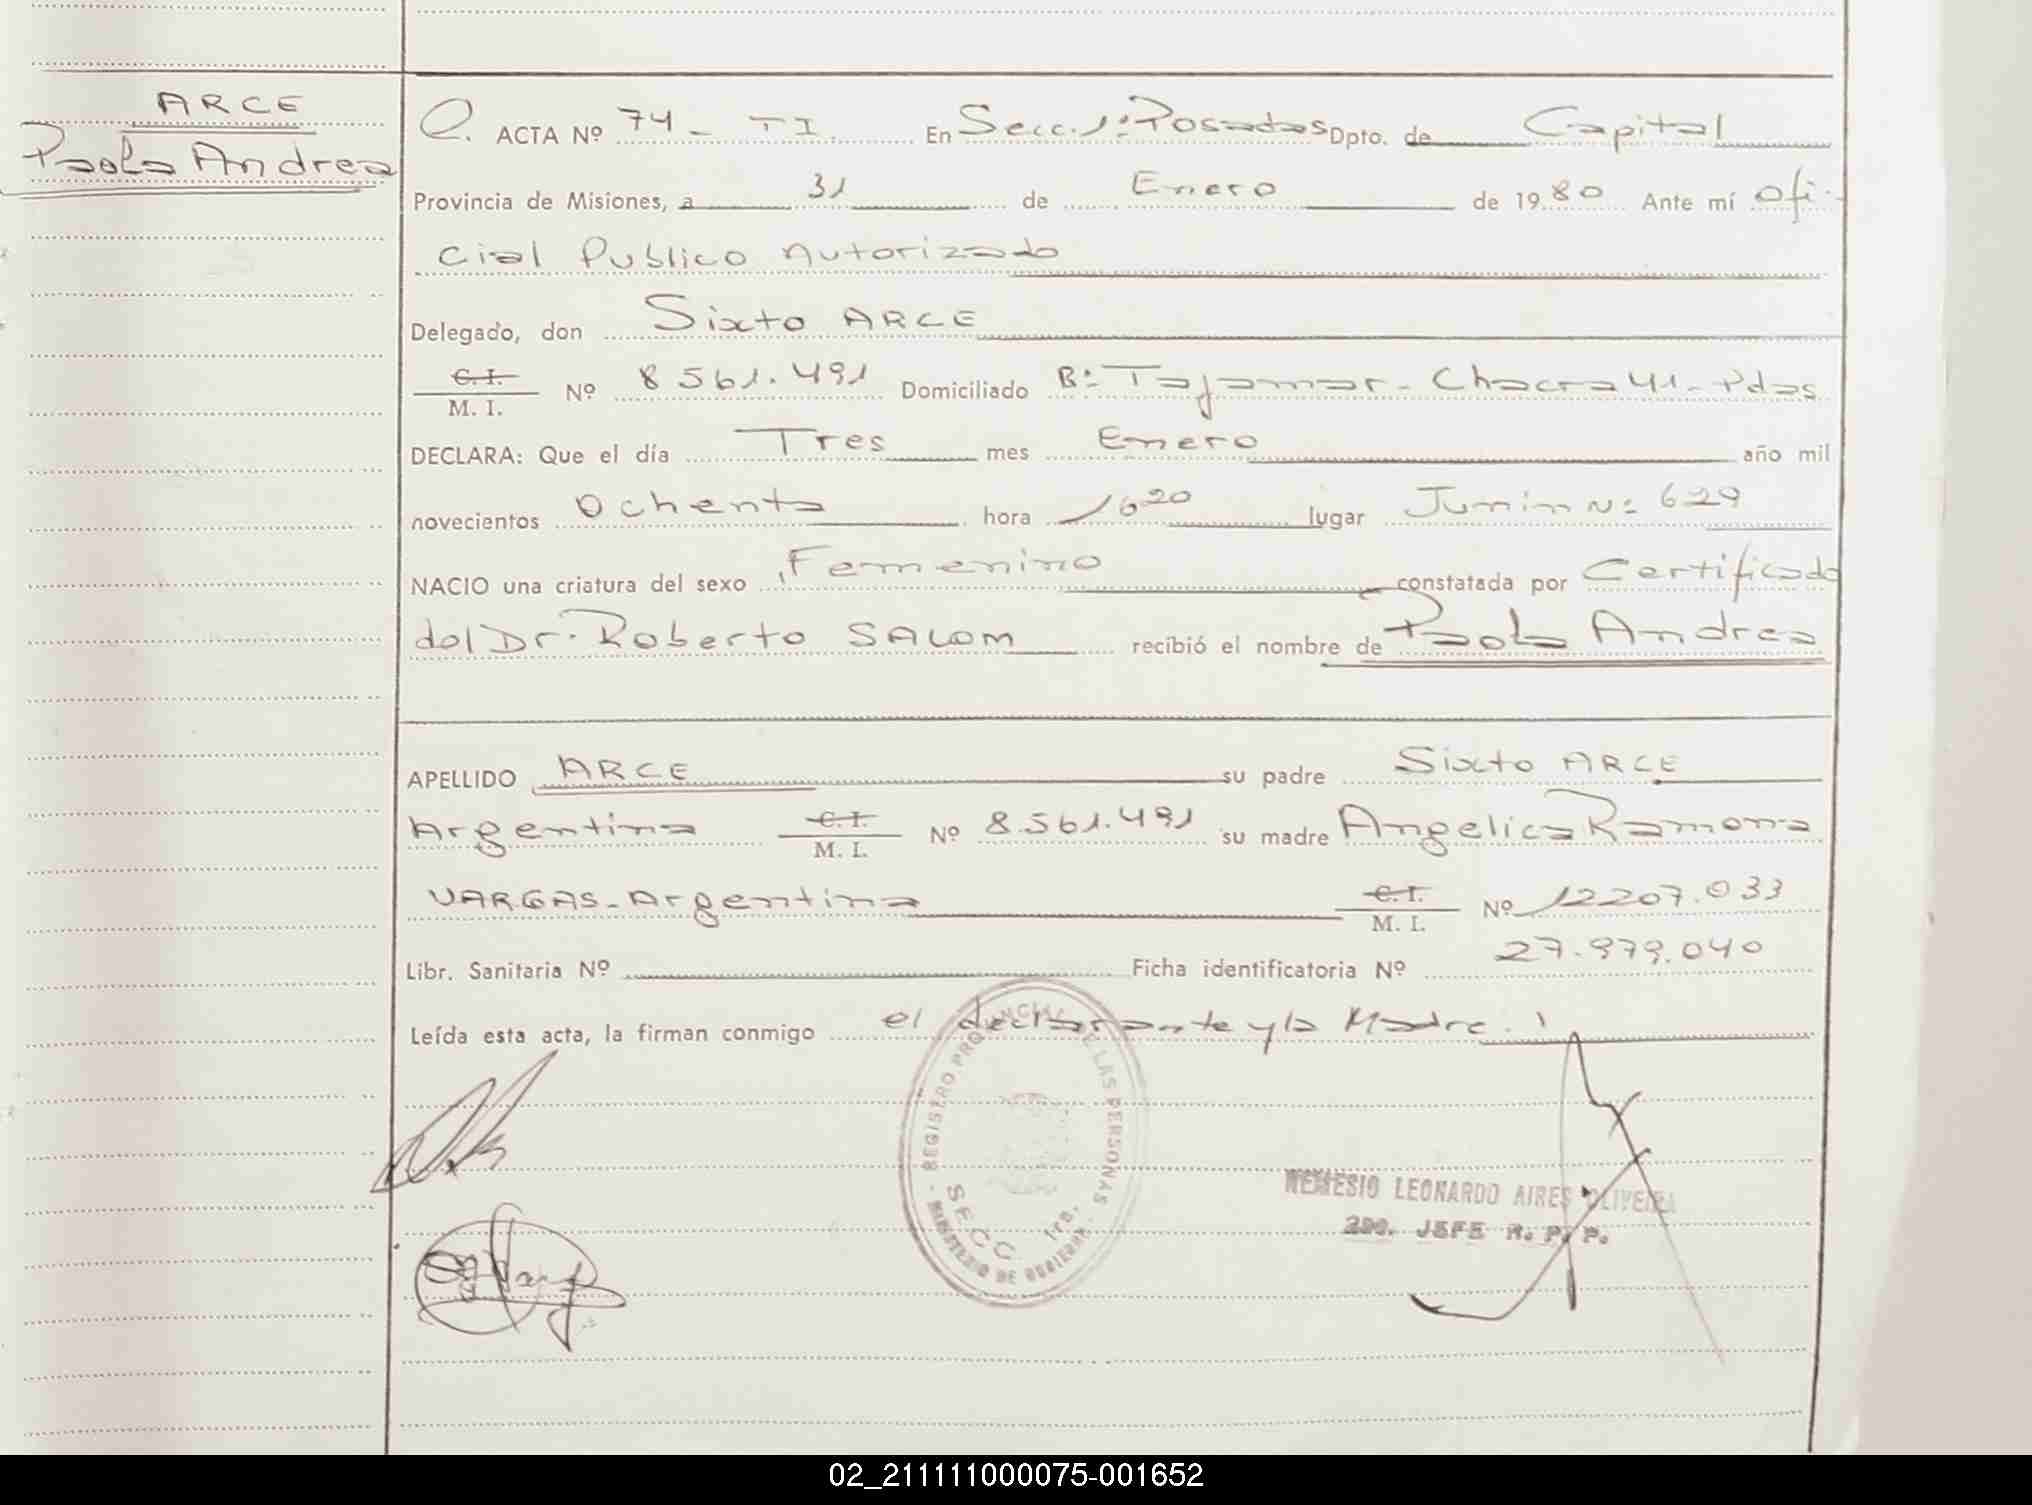 ARCE
Paola Andrea
C. ACTA Nº 74 - TI. En Secc. 1ª: Posadas Dpto. de Capital
Provincia de Misiones, a 31 de Enero de 1980 Ante mí Ofi-
cial Publico Autorizado
Delegado, don Sixto ARCE
C. I. / M. I. Nº 8561.491 Domiciliado Bº Tajamar - Chacra 41 - Pdas
DECLARA: Que el día Tres mes Enero año mil
novecientos Ochenta hora 16 20 lugar Junin Nº 629
NACIO una criatura del sexo Femenino constatada por Certificado
del Dr. Roberto SALOM recibió el nombre de Paola Andrea
APELLIDO ARCE su padre Sixto ARCE
Argentina C. I. / M. I. Nº 8.561.491 su madre Angelica Ramona
VARGAS - Argentina C. I. / M. I. Nº 12207.033
Libr. Sanitaria Nº Ficha identificatoria Nº 27.979.040
Leída esta acta, la firman conmigo el declarante y la Madre.
REGISTRO PROVINCIAL DE LAS PERSONAS
SECC 1ra.
MINISTERIO DE GOBIERNO
NEMESIO LEONARDO AIRES OLIVEIRA
2do. JEFE R. P. P.
02_211111000075-001652